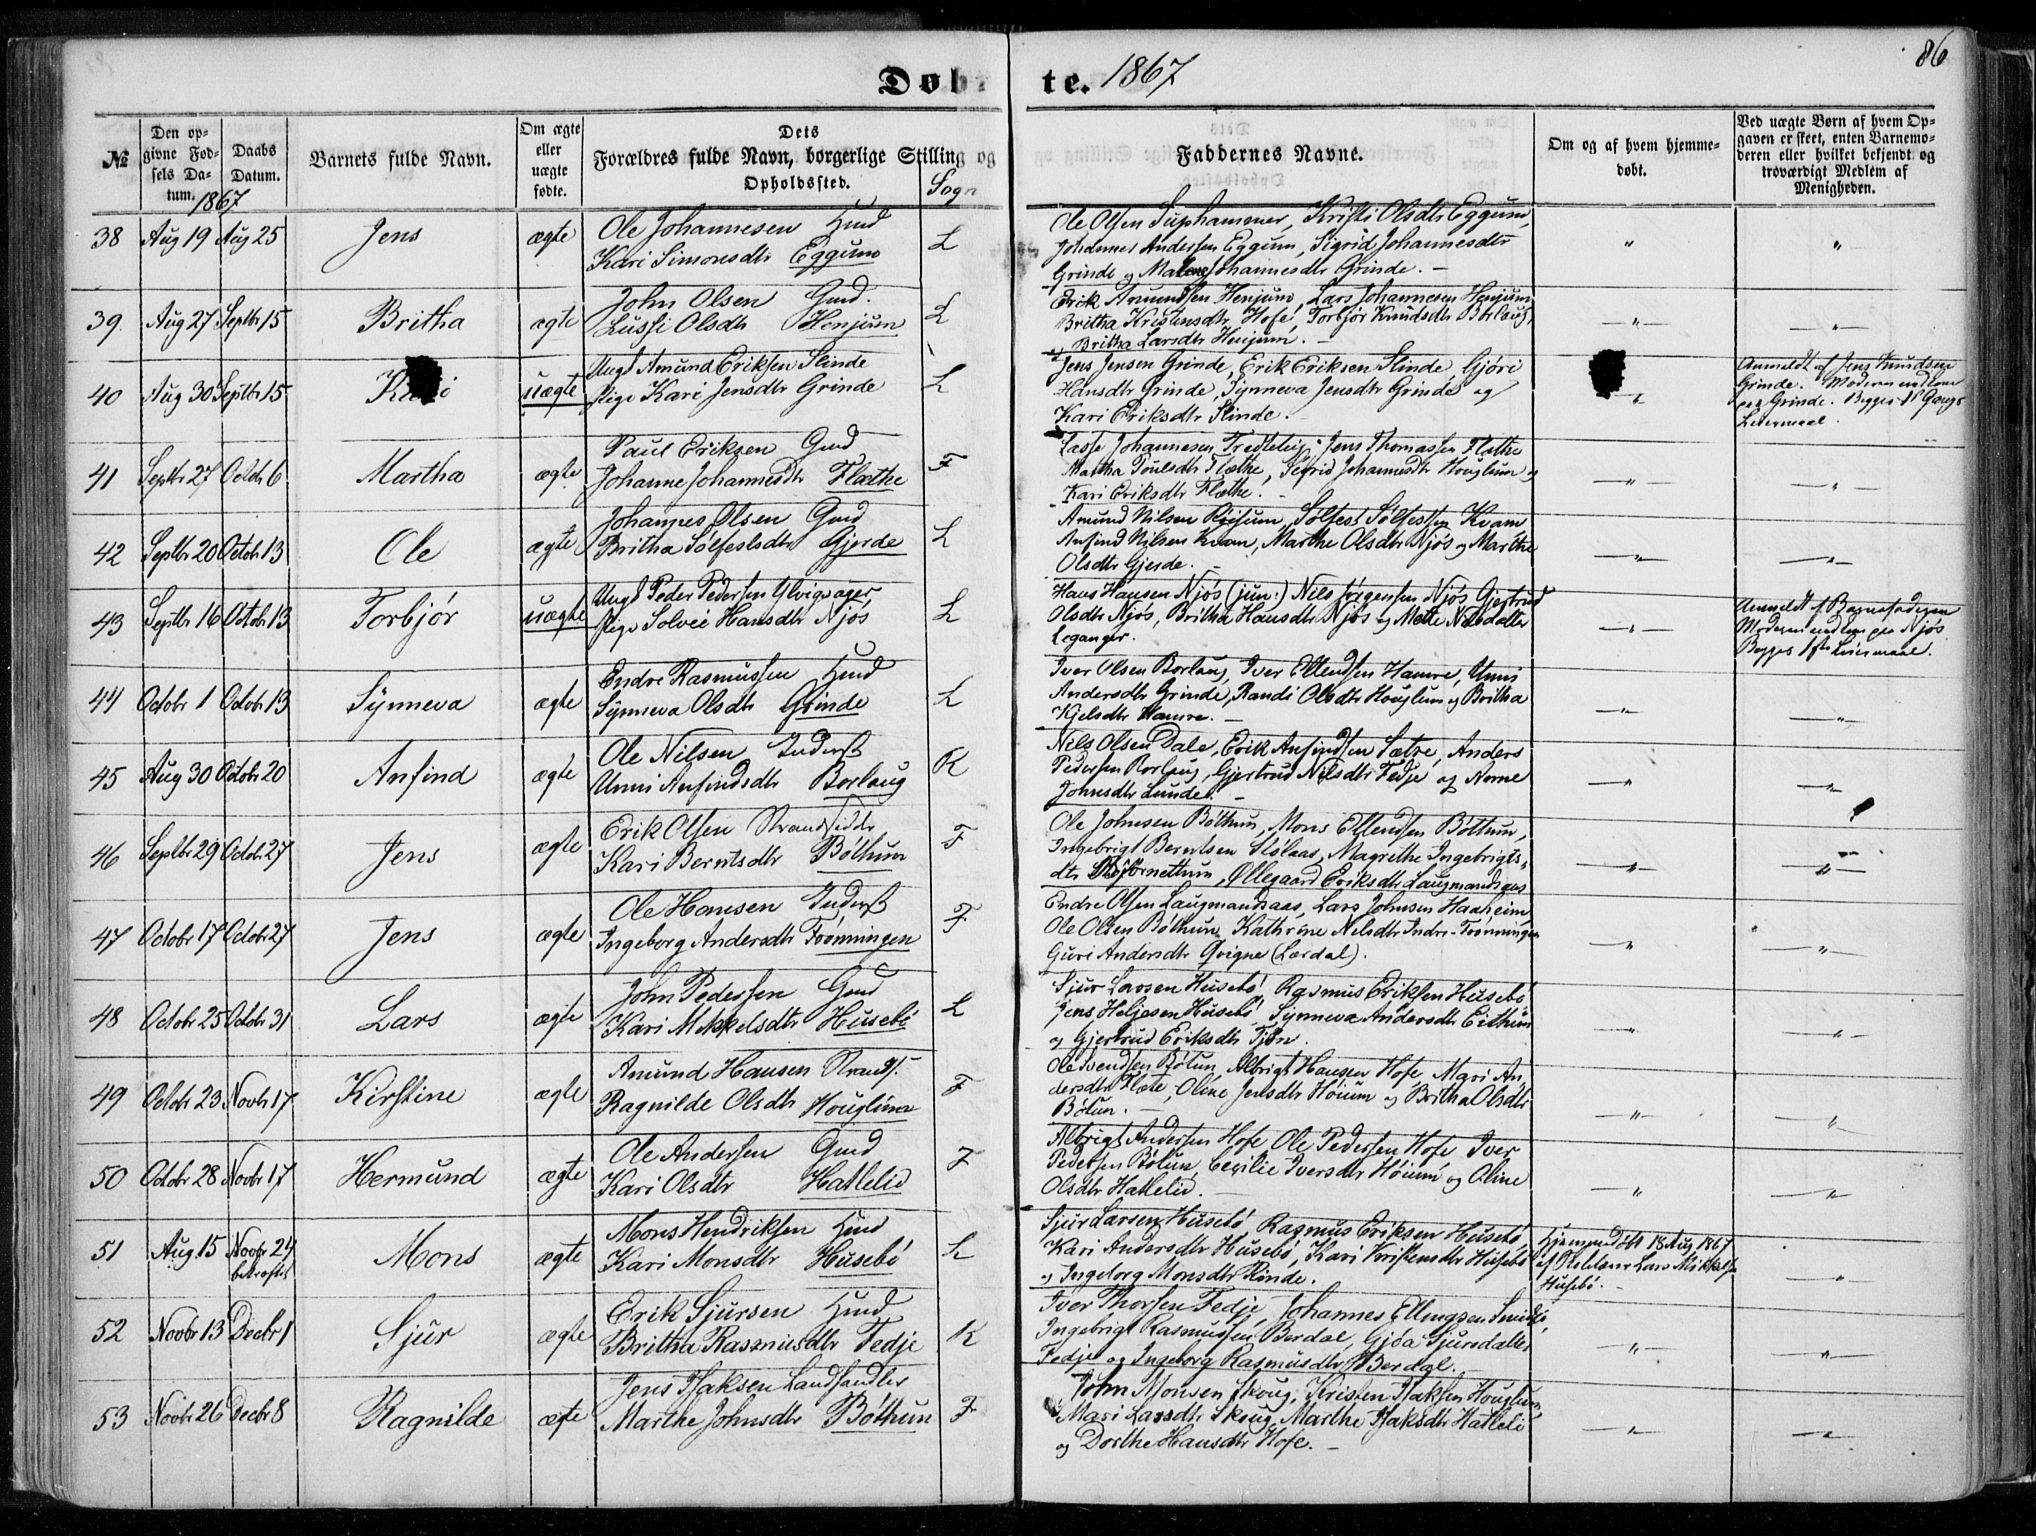 86
Døbte. 1867
№
Den opgivne Fødsels Datum.
Daabs Datum.
1867
Barnets fulde Navn.
Om ægte eller uægte fødte.
Dets Forældres fulde Navn, borgerlige Stilling og Opholdssted.
Sogn
Faddernes Navne.
Om og af hvem hjemmedøbt.
Ved uægte Børn af hvem Opgaven er skeet, enten Barnemoderen eller hvilket bekjendt og troværdigt Medlem af Menigheden.
38 Aug 19 Aug 25 Jens ægte
Ole Johannesen Hmd
Kari Simonsdtr Eggum L
Ole Olsen Suphammer, Kristi Olsdtr Eggum,
Johannes Andersen Eggum, Sigrid Johannesdtr
Grinde og Malene Johannesdtr Grinde. —
39. Aug 27 Septbr 15 Britha ægte
John Olsen Gmd.
Lussi Olsdtr Henjum L
Erik Amundsen Henjum, Lars Johannesen Henjum
Britha Kristensdtr Hofe, Torbjør Knudsdtr Borlaug,
og Britha Larsdtr Henjum. —
40 Aug 30 Septbr 15 Kari uægte
Ungk Amund Eriksen Slinde
Pige Kari Jensdtr Grinde L
Jens Jensen Grinde, Erik Eriksen Slinde, Gjøri
Hansdtr Grinde, Synneva Jensdtr Grinde og
Kari Eriksdtr Slinde. —
Anmeldt af Jens Knudsen
Grinde. Moderen indlem
paa Grinde. Begges 1ste Gangs
Leiermaal.
41 Septbr 27 Octobr 6 Martha ægte
Paul Eriksen Gmd
Johanne Johannesdtr Flæthe F
Lasse Johannesen Tredteteig, Jens Thomassen Flæthe
Martha Poulsdtr Flæthe, Sigrid Johannesdtr Houglum og
Kari Eriksdtr Flæthe. —
42 Septbr 20 Octobr 13 Ole ægte
Johannes Olsen Gmd
Britha Sølfestsdtr Gjerde L
Amund Nilsen Risum, Sølfest Sølfestsen Kvam
Anfind Nilsen Kvam, Marthe Olsdtr Njøs og Marthe
Olsdtr Gjerde. —
43 Septbr 16 Octobr 13 Torbjør uægte
Ungk Peder Pedersen Ylvisager,
Pige Solvei Hansdtr Njøs L
Hans Hansen Njøs (jun:) Nils Jørgensen Njøs Gjertrud
Olsdtr Njøs, Britha Hansdtr Njøs og Mette Nilsdatter
Leganger.
Anmeldt af Barnefaderen
Moderen indlem paa Njøs
Begges 1ste Leiermaal.
44 Octobr 1 Octobr 13 Synneva ægte
Endre Rasmussen Hmd
Synneva Olsdtr Grinde L
Iver Olsen Borlaug, Iver Ellendsen Hamre, Unni
Andersdtr Grinde, Randi Olsdtr Houglum og Britha
Kjelsdtr Hamre. —
45 Aug 30 Octobr 20 Anfind ægte
Ole Nilsen Inderst
Unni Anfindsdtr Borlaug K
Nils Olsen Dale, Erik Anfindsen Sætre, Anders
Pedersen Borlaug, Gjertrud Nilsdtr Fedje og Norne
Johnsdtr Lunde. —
46 Septbr 29 Octobr 27 Jens ægte
Erik Olsen Strandsidder
Kari Berntsdtr Bøthum F
Ole Johnsen Bøthum, Mons Ellendsen Bøthum,
Ingebrigt Berntsen Stølaas, Magrethe Ingebrigts-
dtr Bjørnettum, Ollegaard Eriksdtr Laugmandsaas
47 Octobr 17 Octobr 27 Jens ægte
Ole Hansen Inderst
Ingeborg Andersdtr Frønningen F
Endre Olsen Laugmandsaas, Lars Johnsen Haaheim
Ole Olsen Bøthum, Kathrine Nelsdtr Indre-Frønningen
Guri Andersdtr Qvigne (Lærdal).
48 Octobr 25 Octobr 31 Lars ægte
John Pedersen Gmd
Kari Mikkelsdtr Husebø L
Sjur Larsen Husebø, Rasmus Eriksen Husebø
Jens Heljesen Husebø, Synneva Andersdtr Eithun
og Gjertrud Eriksdtr Tjøn.
49 Octobr 23 Novbr 17 Kirstine ægte
Amund Hansen Strands.
Ragnilde Olsdtr Houglum F
Ole Svendsen Bøtun, Albrigt Hansen Hofe, Mari An-
dersdtr Flæte, Oline Jensdtr Høium og Britha Olsdtr
Bøtun. —
50 Octobr 28 Novbr 17 Hermund ægte
Ole Andersen Gmd
Kari Olsdtr Hatlelid F
Albrigt Andersen Hofe, Ole Pedersen Hofe, Iver
Pedersen Bøtun, Cecilie Iversdtr Høium og Oline
Olsdtr Hatlelid. —
51 Aug 15 Novbr 24 bekræftet Mons ægte
Mons Hendriksen Hmd
Kari Monsdtr Husebø L
Sjur Larsen Husebø, Rasmus Eriksen Husebø,
Kari Andersdtr Husebø, Kari Kristensdtr Husebø
og Ingeborg Monsdtr Rinde.
Hjemmedøbt 18 Aug 1867
af Lars Mikkelsen
Husebø.
52 Novbr 13 Decbr 1 Sjur ægte
Erik Sjursen Hmd
Britha Rasmusdtr Fedje K
Iver Thorsen Fedje, Johannes Ellingsen
Ingebrigt Rasmussen Berdal, Gjøa Sjursdatter
Fedje og Ingeborg Rasmusdtr Berdal.
53 Novbr 26 Decbr 8 Ragnilde ægte
Jens Isaksen Landhandler
Marthe Johnsdtr Bøthun F
John Monsen Skoug, Kristen Isaksen Houglum,
Mari Larsdtr Skoug, Marthe Isaksdtr Hatleli
og Dorthe Hansdtr Hofe. —